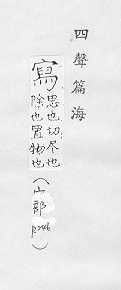 四聲篇海
寫
思也切尽也
除也置物也
（宀部
p246）